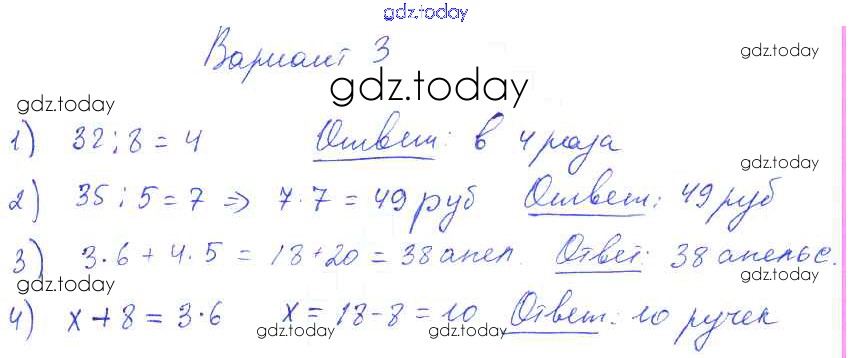 gdz.today
Вариант 3
gdz.today
gdz.today
gdz.today
1) 32 : 8 = 4 Ответ: в 4 раза
gdz.today
2) 35 : 5 = 7 => 7 · 7 = 49 руб Ответ: 49 руб
3) 3 · 6 + 4 · 5 = 18 + 20 = 38 апел. Ответ: 38 апельс.
gdz.today
gdz.today
4) x + 8 = 3 · 6 x = 18 - 8 = 10 Ответ: 10 ручек
gdz.today
gdz.today